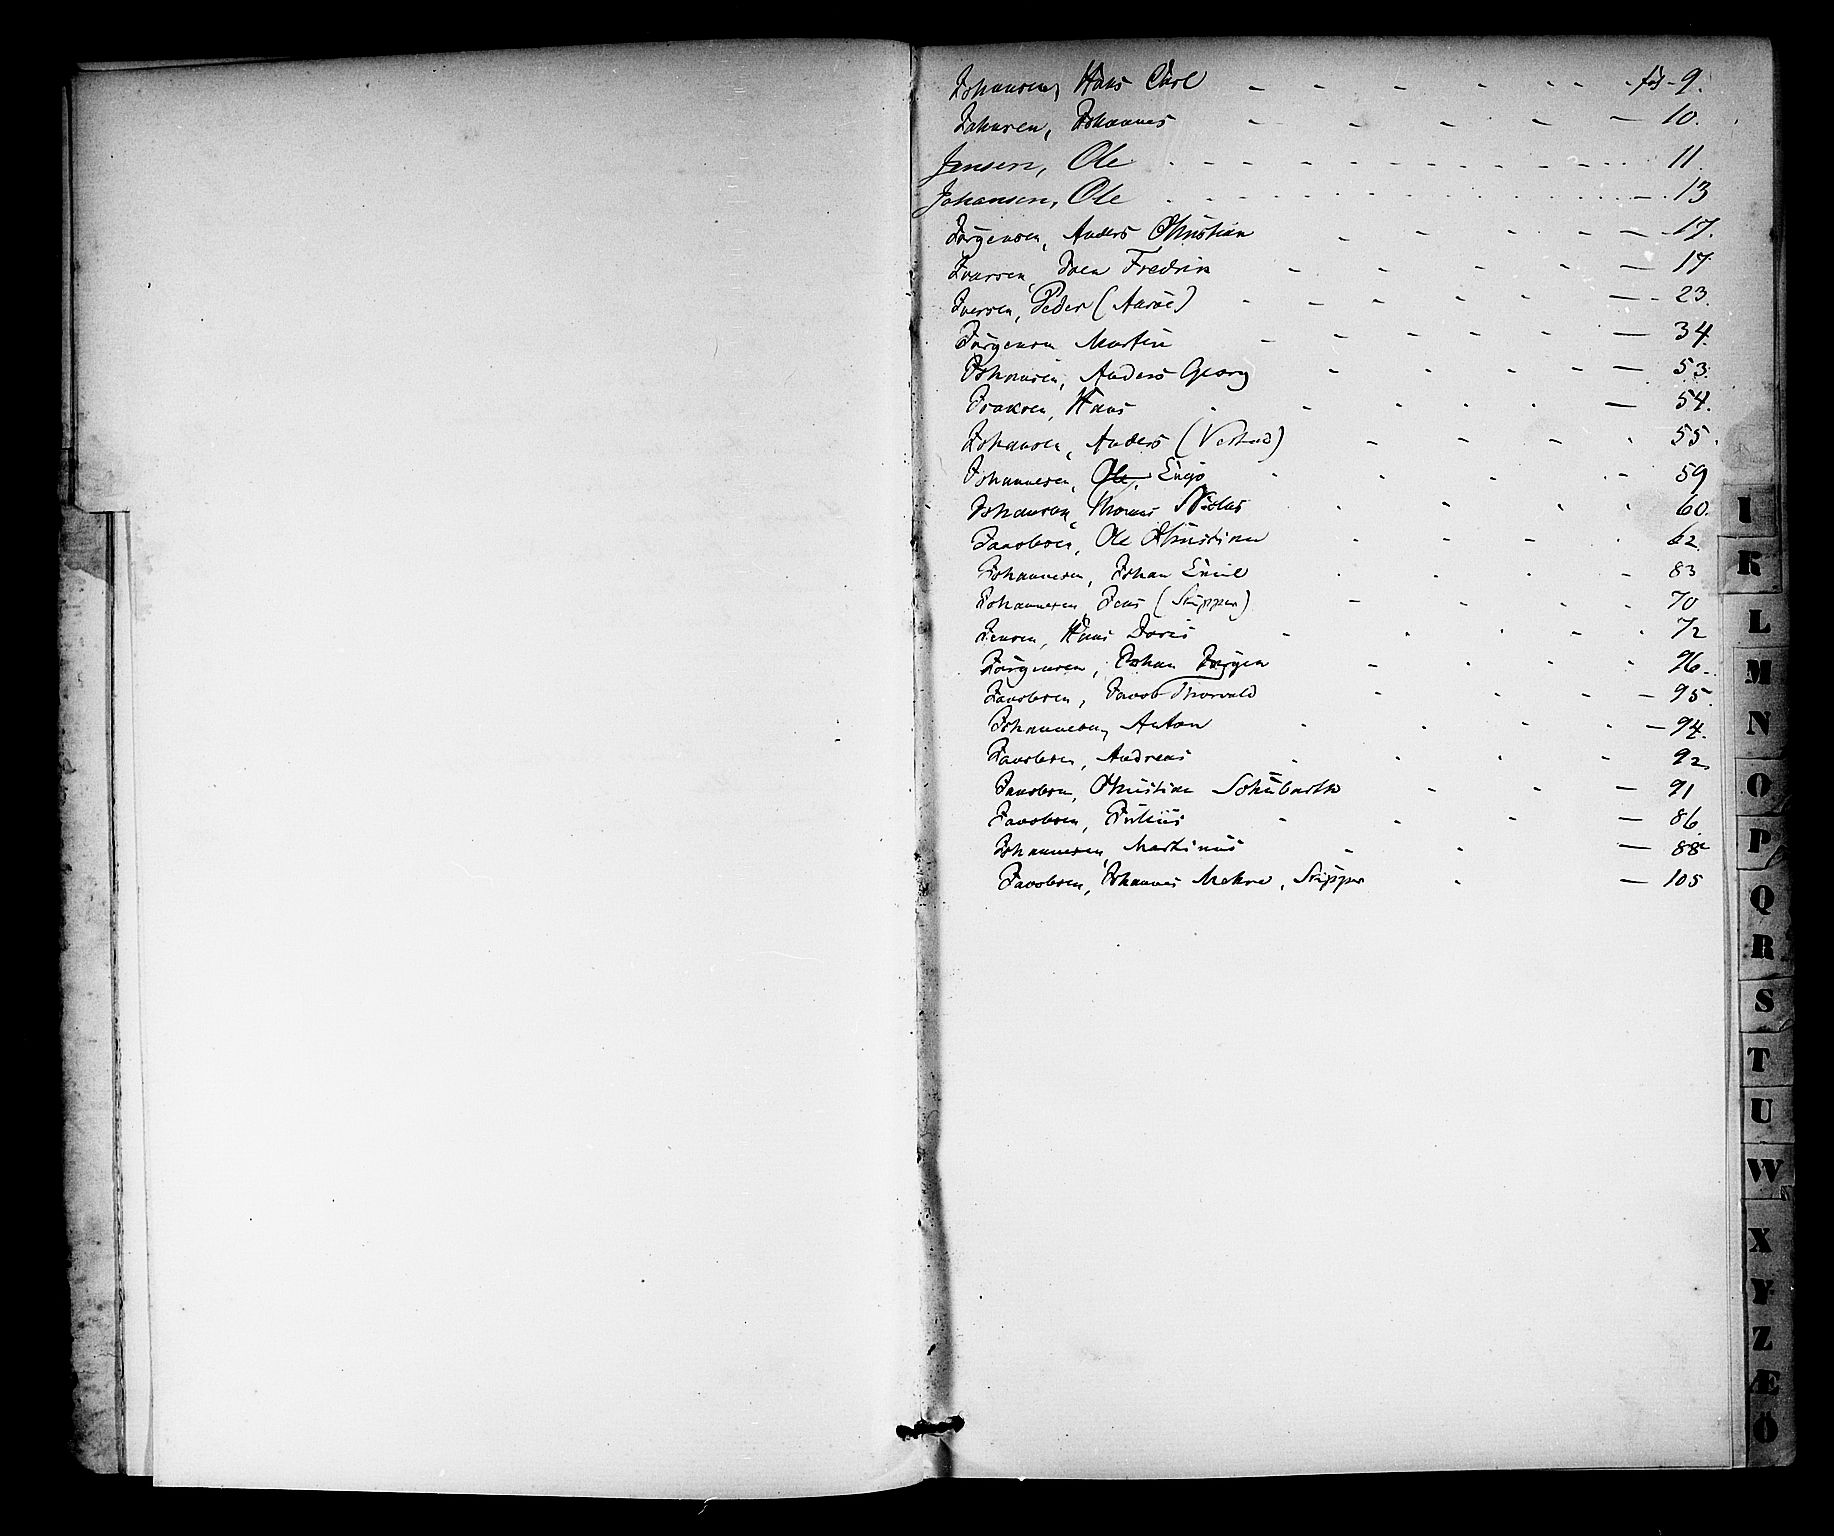 Johansen, Hans Carl - - - - - - - fol - 9.
Johnsen, Johannes - - - - - 10.
Jensen, Ole - - - - - 11
Johansen, Ole - - - - - 13
Jørgensen, Anders Christian - - - - - 17.
Iversen, Fredrik - - - - - 17
Iversen, Peder (Aarøe) - - - - - 23.
Jørgensen Martin - - - - - 34.
Johansen, Anders Georg - - - - - 53.
Isaksen, Hans - - - - - 54.
Johansen, Anders - - - - 55.
Johannesen, Ole, - - - - 59
Johansen, Thomas Nicolas - - - - 60.
Jacobsen, Ole Christian - - - - 62.
Johannesen, Johan Emil - - - 83
Johannesen Jens (Skipper) - - - - 70
Jensen, Hans Doris - - - - - 72
Jørgensen, Johan Jørgen - - - - 96.
Jacobsen, Jacob Thorvald - - - - 95.
Johannesen, Anton - - - - - 94.
Jacobsen, Andreas - - - - 92.
Jacobsen, Christian Schübarth - - - 91
Jacobsen, Julius - - - - 86.
Johannesen, Martinus - - - 88
Jacobsen, Johannes, Skipper - - 105
I
K
L
M
N
O
P
Q
R
S
T
U
W
X
Y
Z
Æ
Ø